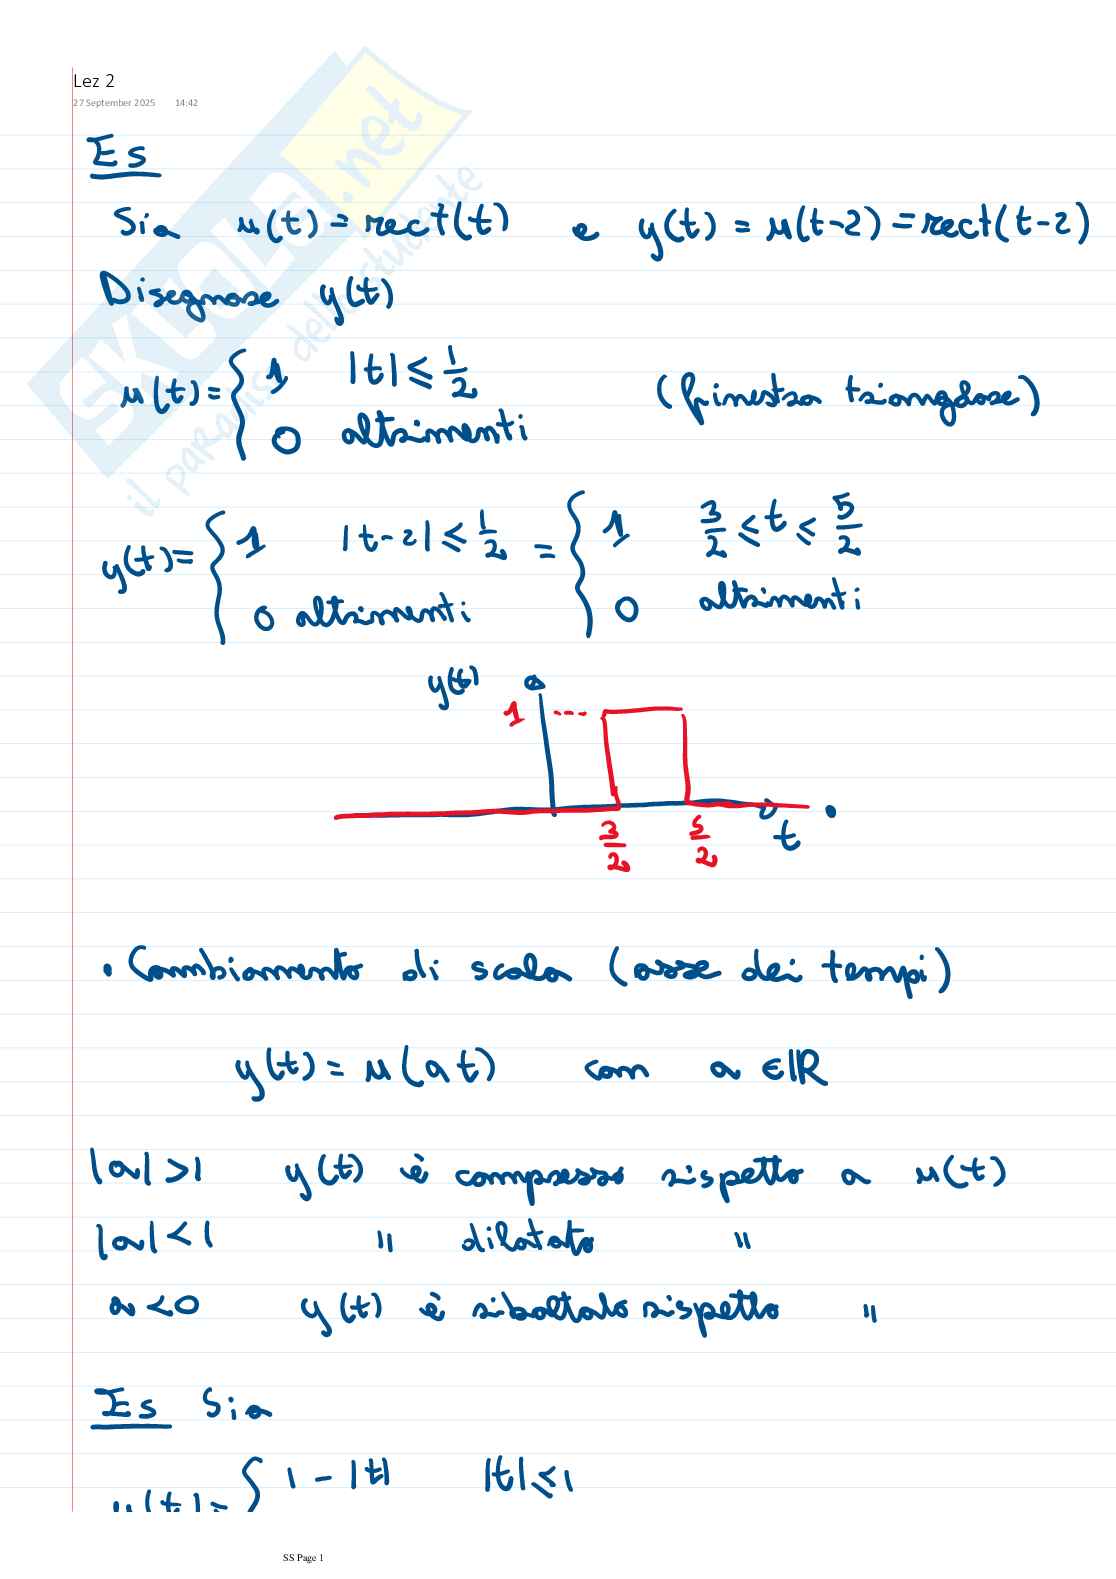 Lez 2
27 September 2025 14:42
Es
Sia u(t) = rect(t) e y(t) = u(t-2) = rect(t-2)
Disegnare y(t)
u(t) = { 1 |t| ≤ 1/2
0 altrimenti
(finestra triangolare)
y(t) = { 1 |t-2| ≤ 1/2 = { 1 3/2 ≤ t ≤ 5/2
0 altrimenti 0 altrimenti
y(t)
1
3/2 5/2 t
• Cambiamento di scala (asse dei tempi)
y(t) = u(at) con a ∈ ℝ
|a| > 1 y(t) è compresso rispetto a u(t)
|a| < 1 " dilatato "
a < 0 y(t) è ribaltato rispetto "
Es Sia
u(t) = { 1 - |t| |t| ≤ 1
SS Page 1
SKUOLA.net
il paradiso dello studente